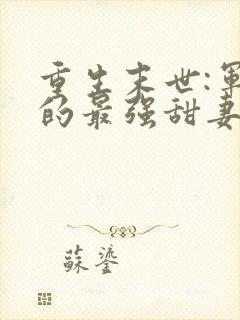 重生末世:軍
的最强甜妻
蘇鎏